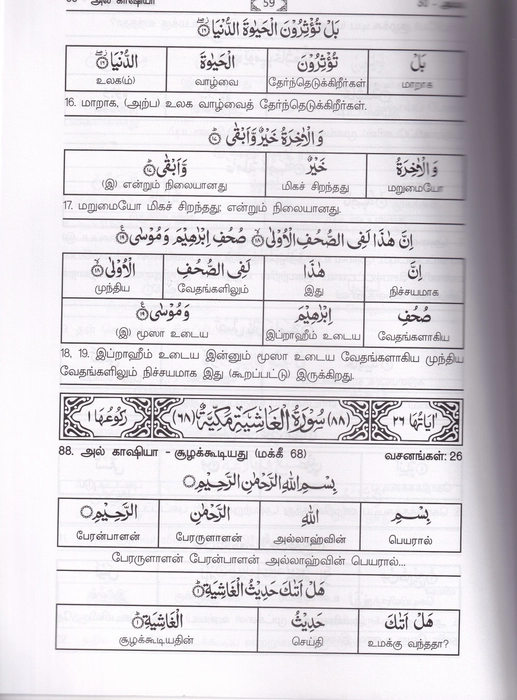 59
بَلْ تُؤْثِرُوْنَ الْحَيٰوةَ الدُّنْيَا ۖ۝۱۶
بَلْ تُؤْثِرُوْنَ الْحَيٰوةَ الدُّنْيَا ۖ۝۱۶
மாறாக தேர்ந்தெடுக்கிறீர்கள் வாழ்வை உலக(ம்)
16. மாறாக, (அற்ப) உலக வாழ்வைத் தேர்ந்தெடுக்கிறீர்கள்.
وَالْاٰخِرَةُ خَيْرٌ وَّاَبْقٰى ۝۱۷
وَالْاٰخِرَةُ خَيْرٌ وَّاَبْقٰى ۝۱۷
மறுமையோ மிகச் சிறந்தது (இ) என்றும் நிலையானது
17. மறுமையோ மிகச் சிறந்தது; என்றும் நிலையானது.
اِنَّ هٰذَا لَفِى الصُّحُفِ الْاُوْلٰى ۝۱۸ صُحُفِ اِبْرٰهِيْمَ وَمُوْسٰى ۝۱۹
اِنَّ هٰذَا لَفِى الصُّحُفِ الْاُوْلٰى ۝۱۸
நிச்சயமாக இது வேதங்களிலும் முந்திய
صُحُفِ اِبْرٰهِيْمَ وَمُوْسٰى ۝۱۹
வேதங்களாகிய இப்றாஹீம் உடைய (இ) மூஸா உடைய
18, 19. இப்றாஹீம் உடைய இன்னும் மூஸா உடைய வேதங்களாகிய முந்திய
வேதங்களிலும் நிச்சயமாக இது (கூறப்பட்டு) இருக்கிறது.
اٰيَاتُهَا ۲۶ (۸۸) سُوْرَةُ الْغَاشِيَةِ مَكِّيَّةٌ (۶۸) رُكُوْعُهَا ۱
88. அல் காஷியா - சூழக்கூடியது (மக்கீ 68) வசனங்கள்: 26
بِسْمِ اللّٰهِ الرَّحْمٰنِ الرَّحِيْمِ ۝
بِسْمِ اللّٰهِ الرَّحْمٰنِ الرَّحِيْمِ ۝
பெயரால் அல்லாஹ்வின் பேரருளாளன் பேரன்பாளன்
பேரருளாளன் பேரன்பாளன் அல்லாஹ்வின் பெயரால்...
هَلْ اَتٰىكَ حَدِيْثُ الْغَاشِيَةِ ۝۱
هَلْ اَتٰىكَ حَدِيْثُ الْغَاشِيَةِ ۝۱
உமக்கு வந்ததா? செய்தி சூழக்கூடியதின்